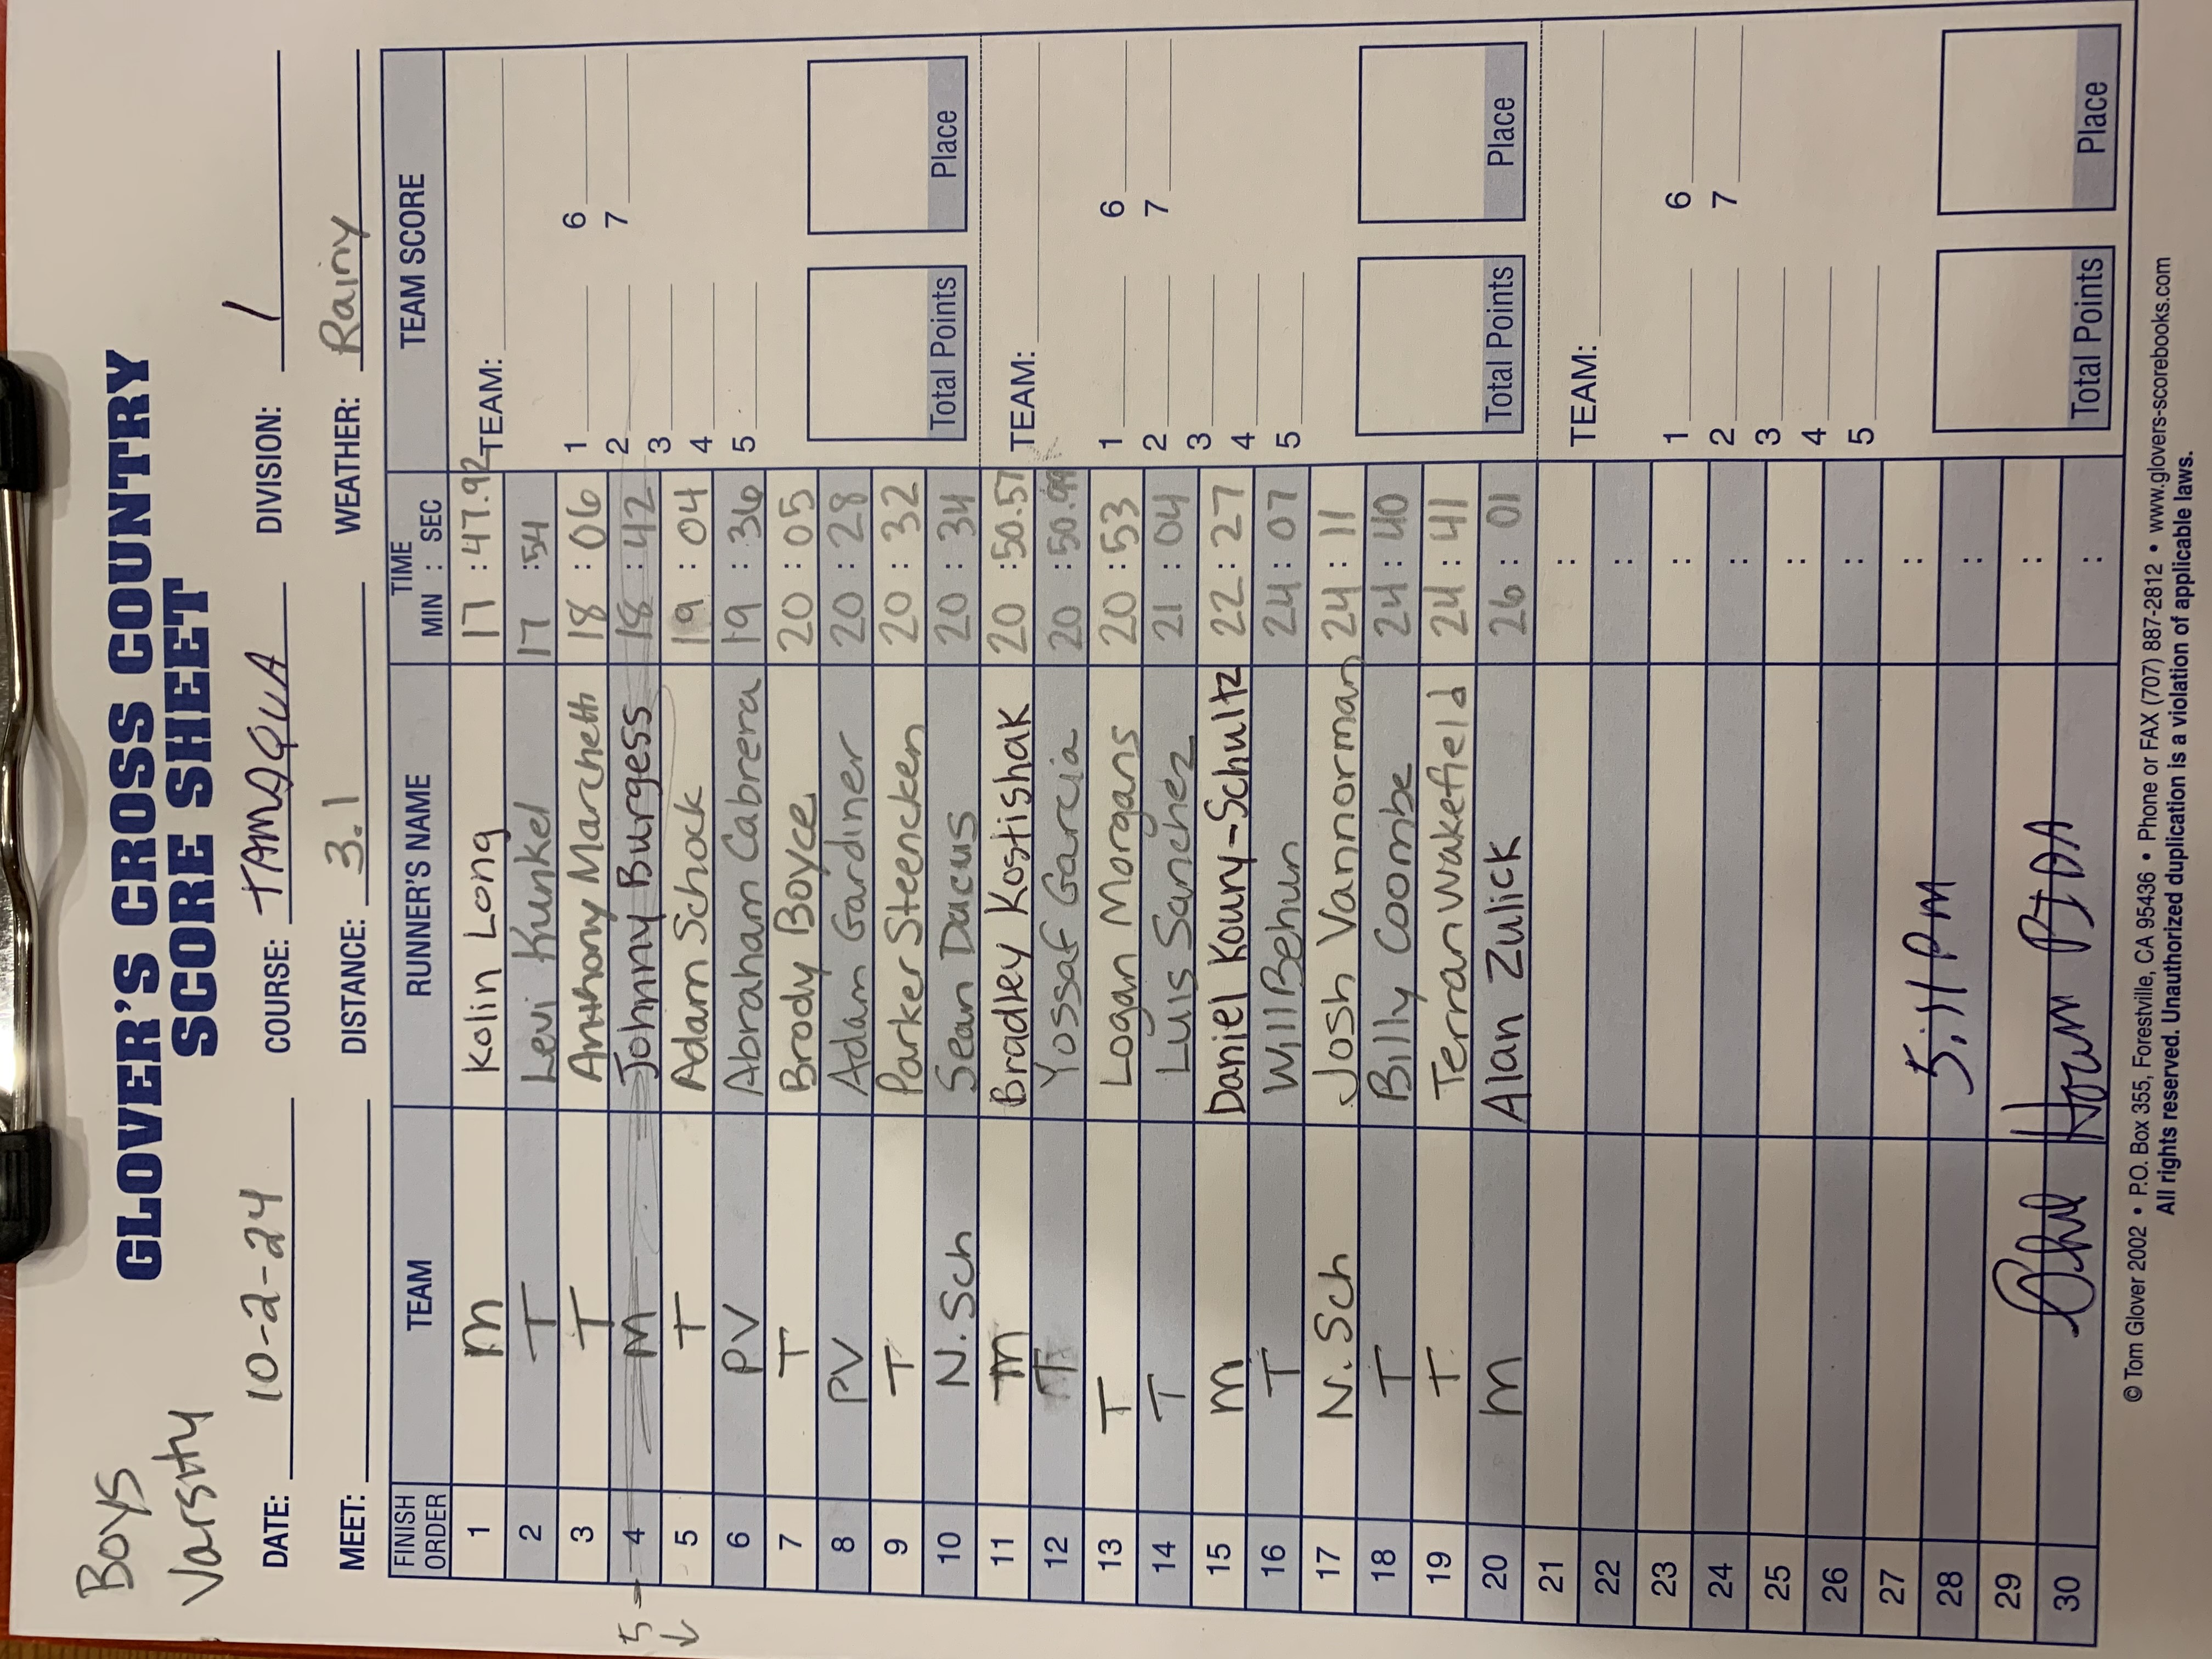 Boys
Varsity
GLOVER'S CROSS COUNTRY
SCORE SHEET
DATE: 10-2-24 COURSE: TAMAQUA DIVISION: 1
MEET: DISTANCE: 3.1 WEATHER: Rainy
FINISH ORDER TEAM RUNNER'S NAME TIME MIN : SEC TEAM SCORE
1 M Kolin Long 17 : 47.92
2 T Levi Kunkel 17 : 54
3 T Anthony Marchetti 18 : 06
5 4 M Johnny Burgess 18 : 42
↓ 5 T Adam Schock 19 : 04
6 PV Abraham Cabrera 19 : 36
7 T Brody Boyce 20 : 05
8 PV Adam Gardiner 20 : 28
9 T Parker Steencken 20 : 32
10 N.Sch Sean Dacus 20 : 34
11 M Bradley Kostishak 20 : 50.57
12 T Yossaf Garcia 20 : 50.99
13 T Logan Morgans 20 : 53
14 T Luis Sanchez 21 : 04
15 M Daniel Koury-Schultz 22 : 27
16 T Will Behun 24 : 07
17 N.Sch Josh Vannorman 24 : 11
18 T Billy Coombe 24 : 40
19 T Terran Wakefield 24 : 41
20 M Alan Zulick 26 : 01
21 :
22 :
23 :
24 :
25 :
26 :
27 :
28 5:11 PM :
29 :
30 :
TEAM:
1 6
2 7
3
4
5
Total Points Place
TEAM:
1 6
2 7
3
4
5
Total Points Place
TEAM:
1 6
2 7
3
4
5
Total Points Place
© Tom Glover 2002 • P.O. Box 355, Forestville, CA 95436 • Phone or FAX (707) 887-2812 • www.glovers-scorebooks.com
All rights reserved. Unauthorized duplication is a violation of applicable laws.